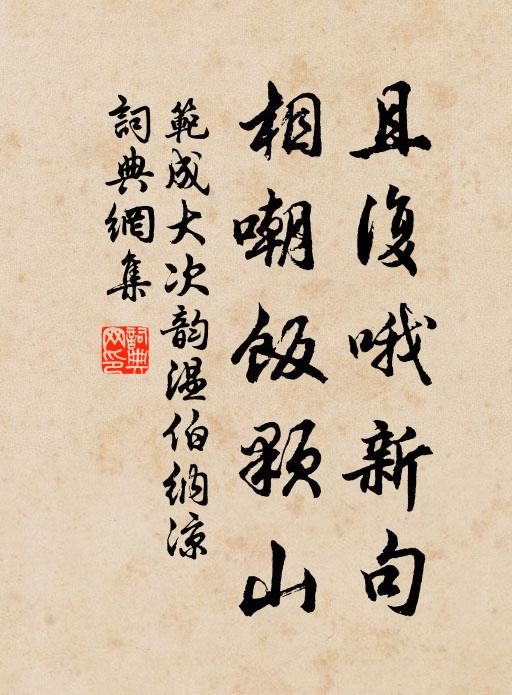 且復哦新句
相嘲飯顆山
範成大次韵温伯納凉
詞典網集
詞典
网印